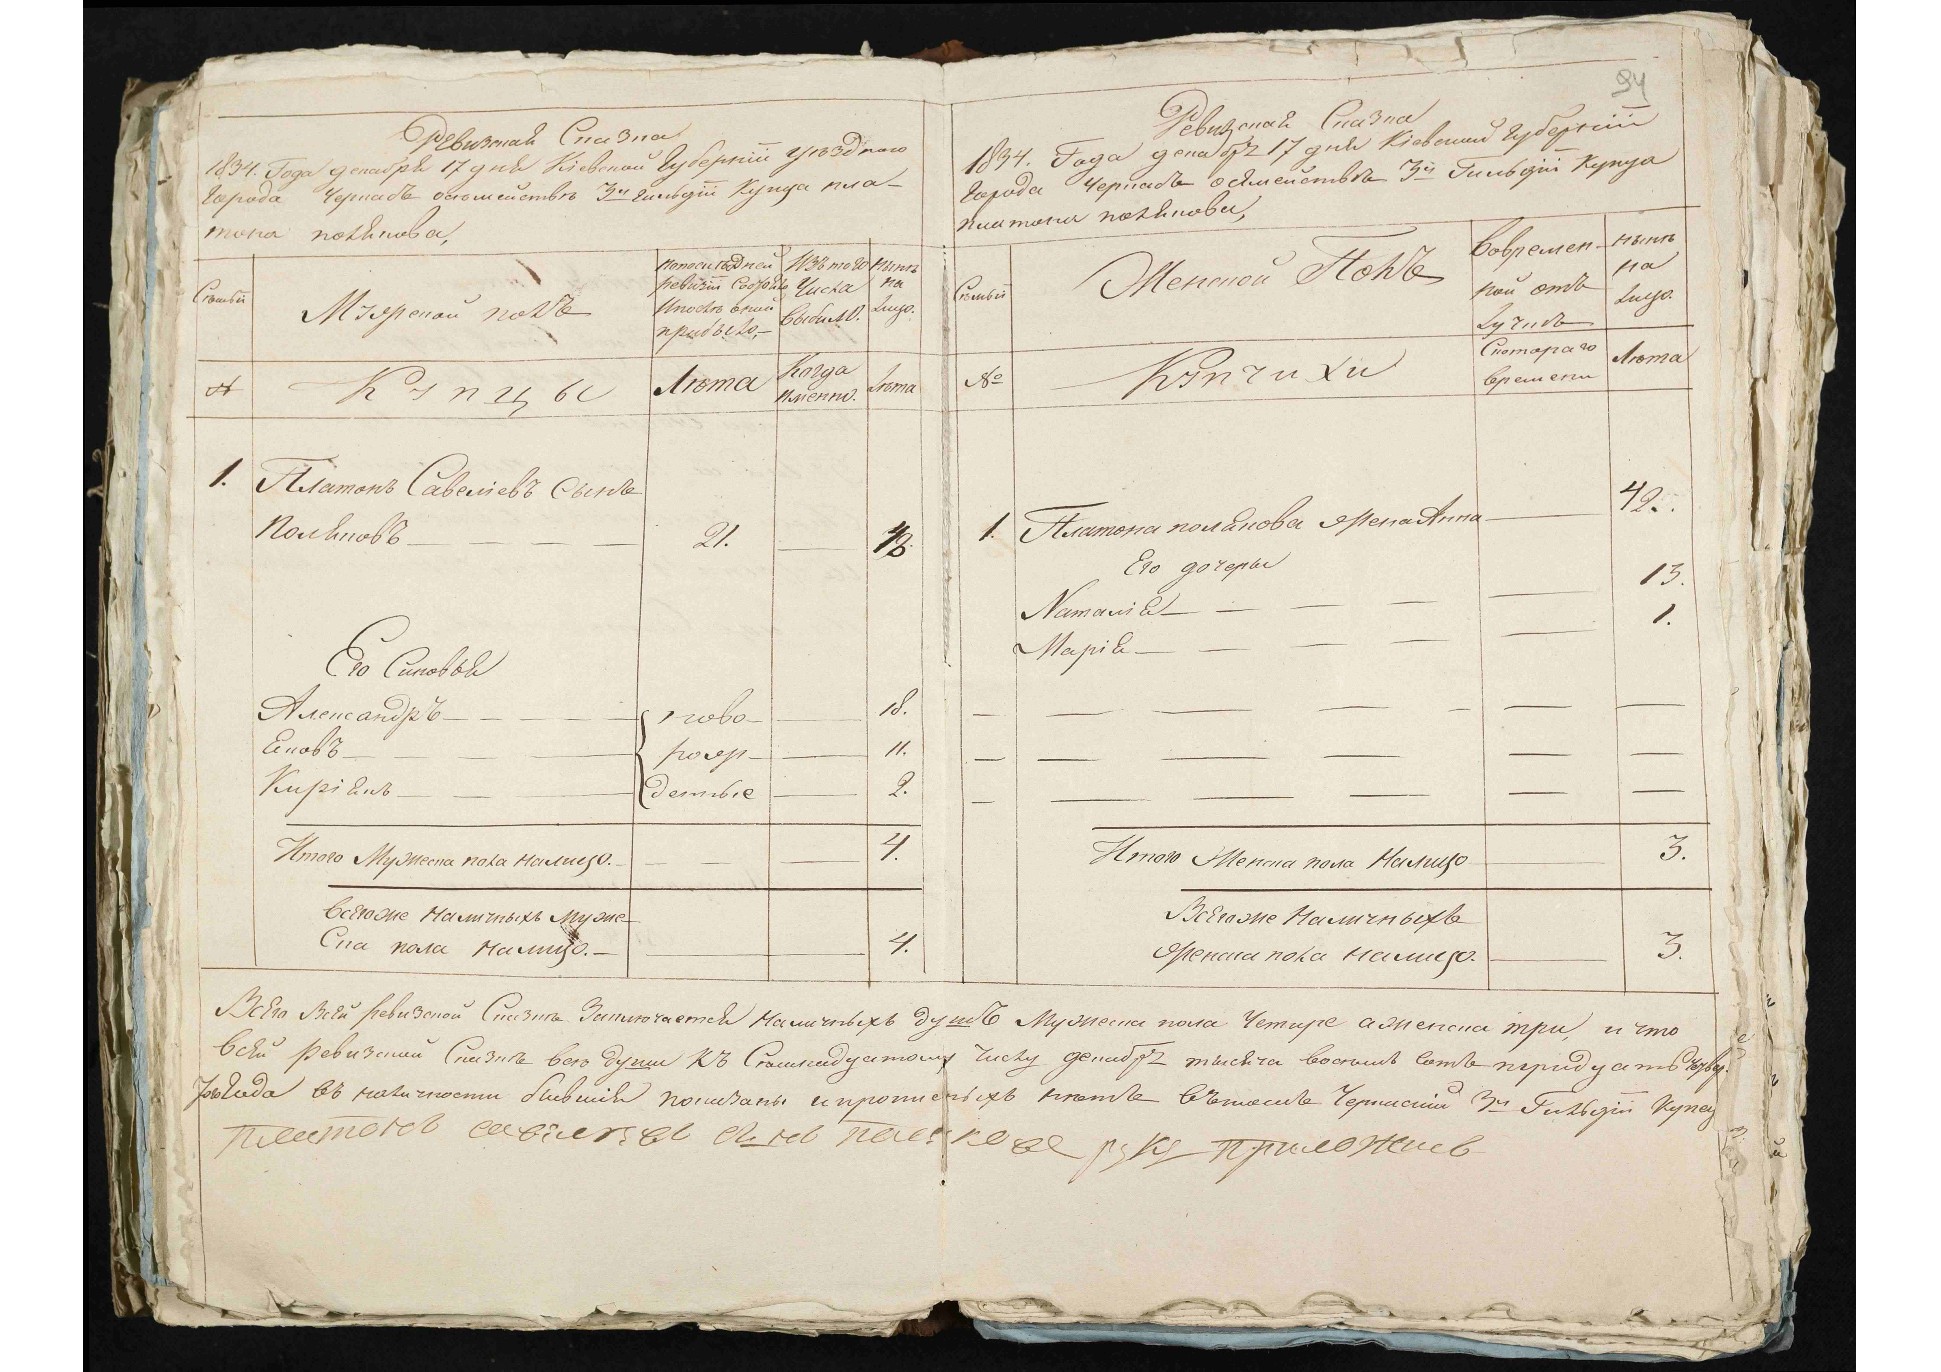 Ревизская Сказка
1834. Года декабря 17 дня Кіевской Губерніи уѣзднаго
Города Черкасъ осемействѣ 3й Гильдіи Купца пла-
тона полякова,
Семьи
Мужеской полъ
Изъ того
Числа
Выбыло.
нынѣ
на
лицо.
№
Купцы
Лѣта
Когда
имянно.
Лѣта
1. Платонъ Савеліевъ Сынъ
Поляковъ 21.
Его Сыновья
Александръ ново 18.
Яковъ рож 11.
Киріякъ денные 2.
Итого Мужеска пола налицо. 4.
всегоже наличныхъ муже
Ска пола налицо. 4.
94
Ревизская Сказка
1834. Года декабря 17 дня Кіевской Губерніи
Города Черкасъ осемействѣ 3й Гильдіи Купца
платона полякова,
Семьи
Женской Полъ
Вовремен-
ной отъ
лучкѣ
нынѣ
на
лицо.
№
Купчихи
Скотораго
времени
Лѣта
1. Платона полякова жена Анна 42.
Его дочеры
Наталія 13.
Марія 1.
Итого Женска пола Налицо 3.
Всегоже Наличныхъ
женска пола налицо. 3.
Всего Всей ревизской Сказкѣ Заключается наличныхъ душъ Мужеска пола Четыре аженска три, и что
всей ревизской Сказкѣ всѣ души къ Семнадцатому числу декабря тысяча восемь сотъ тридцать
Года въ наличности бывшія показаны ипрописныхъ нѣтъ Вътомъ Черкаскій 3й Гильдіи Купец
платонъ савельевъ сынъ поляковъ руку приложилъ